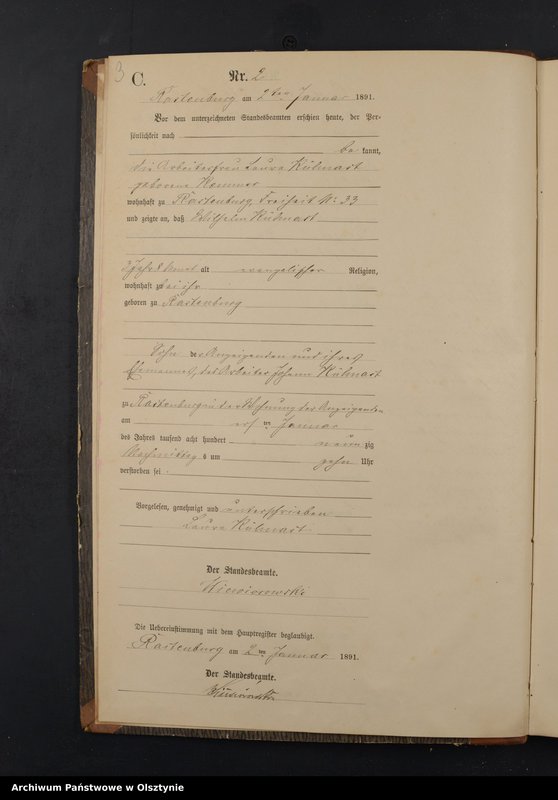 3
C.
Nr. 2
Rastenburg am 2ten Januar 1891.
Vor dem unterzeichneten Standesbeamten erschien heute, der Per-
sönlichkeit nach
be kannt,
die Arbeiterfrau Laura Kühnast
geborene
wohnhaft zu Rastenburg, Freiheit No 33
und zeigte an, daß Wilhelm Kühnast
3 Jahr alt evangelischer Religion,
wohnhaft bei ihr
geboren zu Rastenburg
Sohn der Anzeigenden und ihres
Ehemannes, des Arbeiter Johann Kühnast
zu Rastenburg in der Wohnung der Anzeigenden
am ersten Januar
des Jahres tausend acht hundert neun zig
Nachmittags um zehn Uhr
verstorben sei
Vorgelesen, genehmigt und unterschrieben
Laura Kühnast
Der Standesbeamte.
Die Uebereinstimmung mit dem Hauptregister beglaubigt.
Rastenburg am 2ten Januar 1891.
Der Standesbeamte.
Archiwum Państwowe w Olsztynie